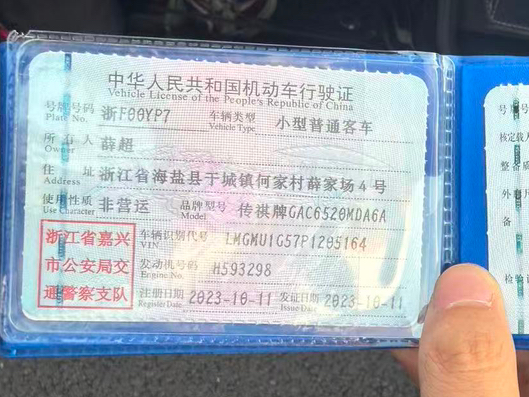 中华人民共和国机动车行驶证
Vehicle License of the People's Republic of China
号牌号码 浙F00YP7 车辆类型 小型普通客车
Plate No. Vehicle Type
所有人 薛超
Owner
住址 浙江省海盐县于城镇何家村薛家场4号
Address
使用性质 非营运 品牌型号 传祺牌GAC6520MDA6A
Use Character Model
浙江省嘉兴
市公安局交
通警察支队
车辆识别代号 LMGMU1G57P1205164
VIN
发动机号码 H593298
Engine No.
注册日期 2023-10-11 发证日期 2023-10-11
Register Date Issue Date
号
核定载
整备质
外廓尺
备
检验记